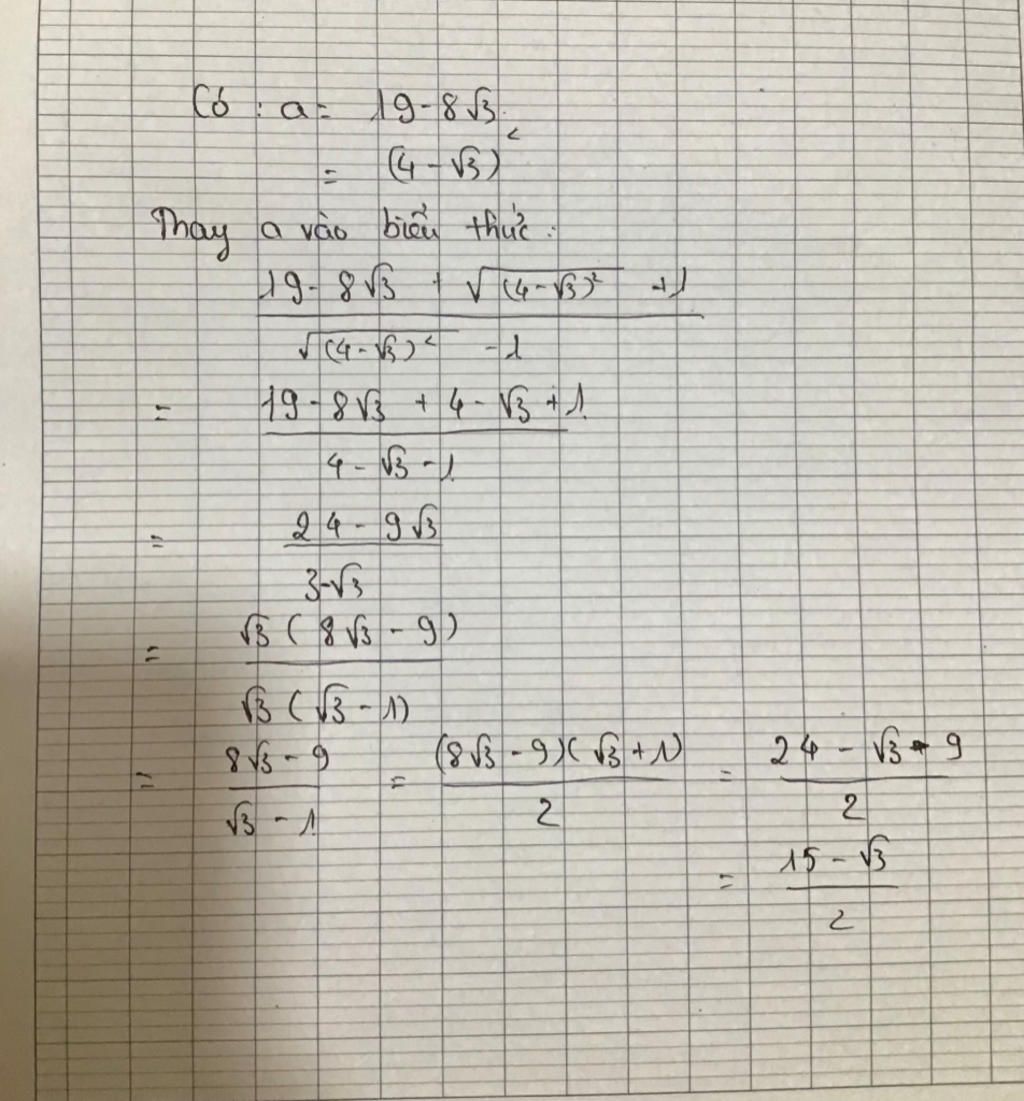 Có : a = 19 - 8√3.
= (4 - √3)²
Thay a vào biểu thức :
19 - 8√3 + √(4 - √3)² + 1
√(4 - √3)² - 1
= 19 - 8√3 + 4 - √3 + 1
4 - √3 - 1
= 24 - 9√3
3 - √3
= √3 ( 8√3 - 9)
√3 ( √3 - 1)
= 8√3 - 9 = (8√3 - 9)( √3 + 1) = 24 - √3 - 9
√3 - 1 2 2
= 15 - √3
2